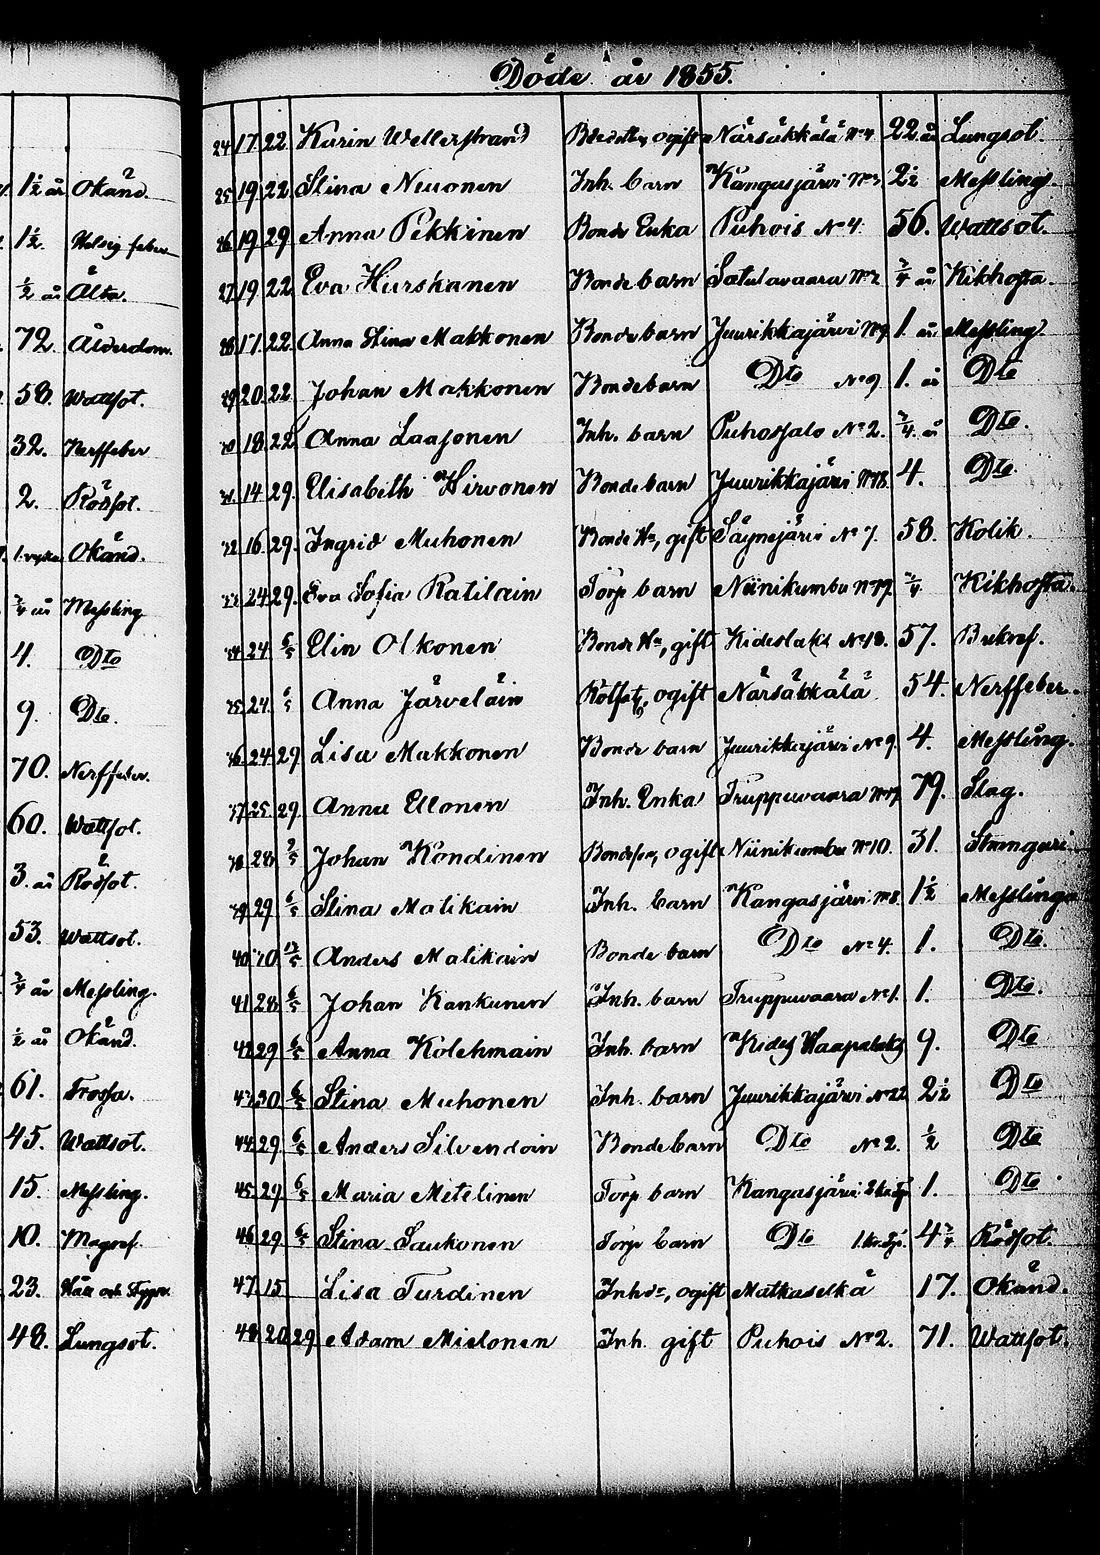 Döde år 1855.
1½ år Okänd.
1½. Helsig feber
½ år Älta.
72. Ålderdom.
58. Wattsot.
32. Nerffeber
2. Rödsot.
1. vecka Okänd.
¾ år Messling
4. Dto
9. Dto.
70. Nerffeber.
60. Wattsot.
3. år Rödsot.
53. Wattsot.
¾ år Messling.
½ år Okänd.
61. Trossa.
45. Wattsot.
15. Messling.
10. Magref.
23. Håll och Stygn.
48. Lungsot.
24 17 22 Karin Wellerstrand ogift Närsäkkälä No 4. 22 år Lungsot.
25 19 22 Stina Neuonen Inh. barn Kangasjärvi No 2½ Messling.
26 19 29 Anna Pekkinen Bonde Enka Puhois No 4. 56. Wattsot.
27 19 22 Eva Hurskanen Bonde barn Satulavaara No 2 ¾ år Kikhosta.
28 17 22 Anna Stina Makkonen Bonde barn Juurikkajärvi No 9. 1. år Messling.
29 20 22 Johan Makkonen Bondebarn Dto No 9 1. år Dto
30 18 22 Anna Laasonen Inh. barn Puhossalo No 2. ¾. år Dto.
31 14 29. Elisabeth Hirvonen Bonde barn Juurikkajärvi No 18. 4. Dto
32 16 29. Ingrid Muhonen Bonde Ha, gift Säynejärvi No 7. 58. Kolik.
33 24 29. Eva Sofia Ratilain Torp barn Niinikumbu No 19. ¾ Kikhosta.
34 24 6/5 Elin Olkonen Bonde Ha, gift Kideslaks No 18. 57. Bukref.
35 24. 6/5 Anna Järveläin ogift Närsäkkälä 54. Nerffeber.
36 24 29 Lisa Makkonen Bonde barn Juurikkajärvi No 9. 4. Messling.
37 25 29 Anna Ellonen Inh. Enka Truppuvaara No 19. 79. Slag.
38 28 6/5 Johan Kondinen Bondeson, ogift Niinikumbu No 10. 31.
39 29 6/5 Stina Malikain Inh. barn Kangasjärvi No 8. 1½ Messlinga
40 10 13/5 Anders Malikain Bonde barn Dto No 4. 1. Dto.
41 28 6/5 Johan Kankunen Inh. barn Truppuvaara No 1. 1. Dto.
42 29 6/5 Anna Kolehmain Inh. barn Kides Haapalaks 9. Dto
43 30 6/5 Stina Muhonen Inh. barn Juurikkajärvi No 22 2½ Dto
44 29 6/5 Anders Silvendoin Bonde barn Dto No 2. ½ Dto
45 29 6/5 Maria Metelinen Torp barn Kangasjärvi 1. Dto.
46 29 6/5 Stina Saukonen Torp barn Dto 4¾ Rödsot.
47. 15 Lisa Turdinen Inhda, ogift Matkaselkä 17. Okänd.
48. 20 29 Adam Mielonen Inh. gift Puhois No 2. 71. Wattsot.